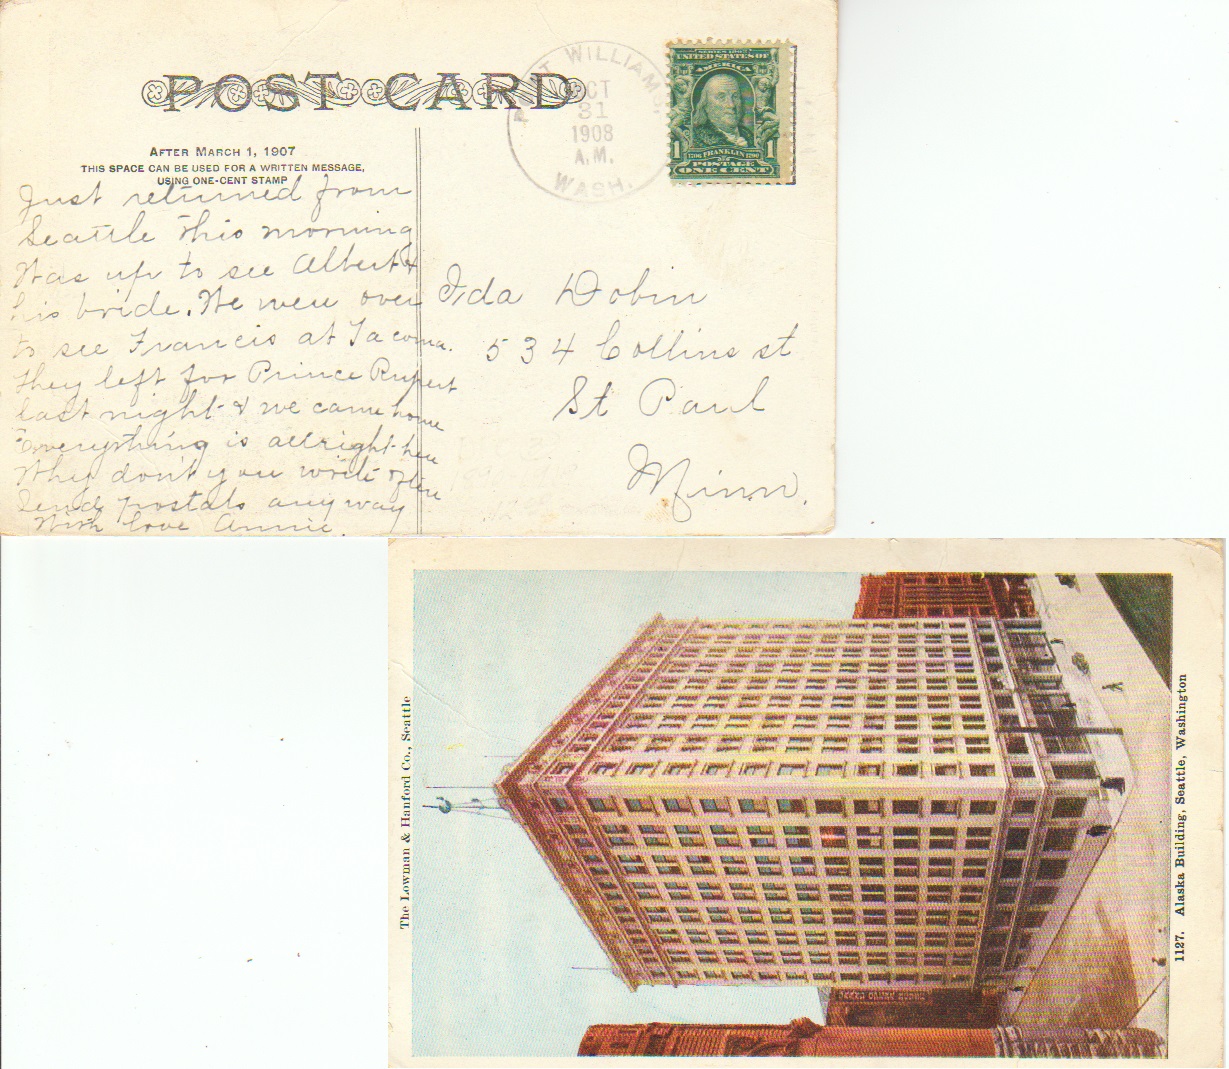 POST CARD
AFTER MARCH 1, 1907
THIS SPACE CAN BE USED FOR A WRITTEN MESSAGE,
USING ONE-CENT STAMP
WILLIAMS
OCT
31
1908
A.M.
WASH.
SERIES 1902
UNITED STATES OF
AMERICA
1706 FRANKLIN 1790
1 1
POSTAGE
ONE CENT
Just returned from
Seattle this morning
Was up to see Albert &
his bride. We were over
to see Francis at Tacoma.
they left for Prince Rupert
last night & we came home
everything is allright here
Why don't you write often
Send postals any way
With love Annie.
Ida Dobin
534 Collins st
St Paul
Minn.
The Lowman & Hanford Co., Seattle
1127. Alaska Building, Seattle, Washington